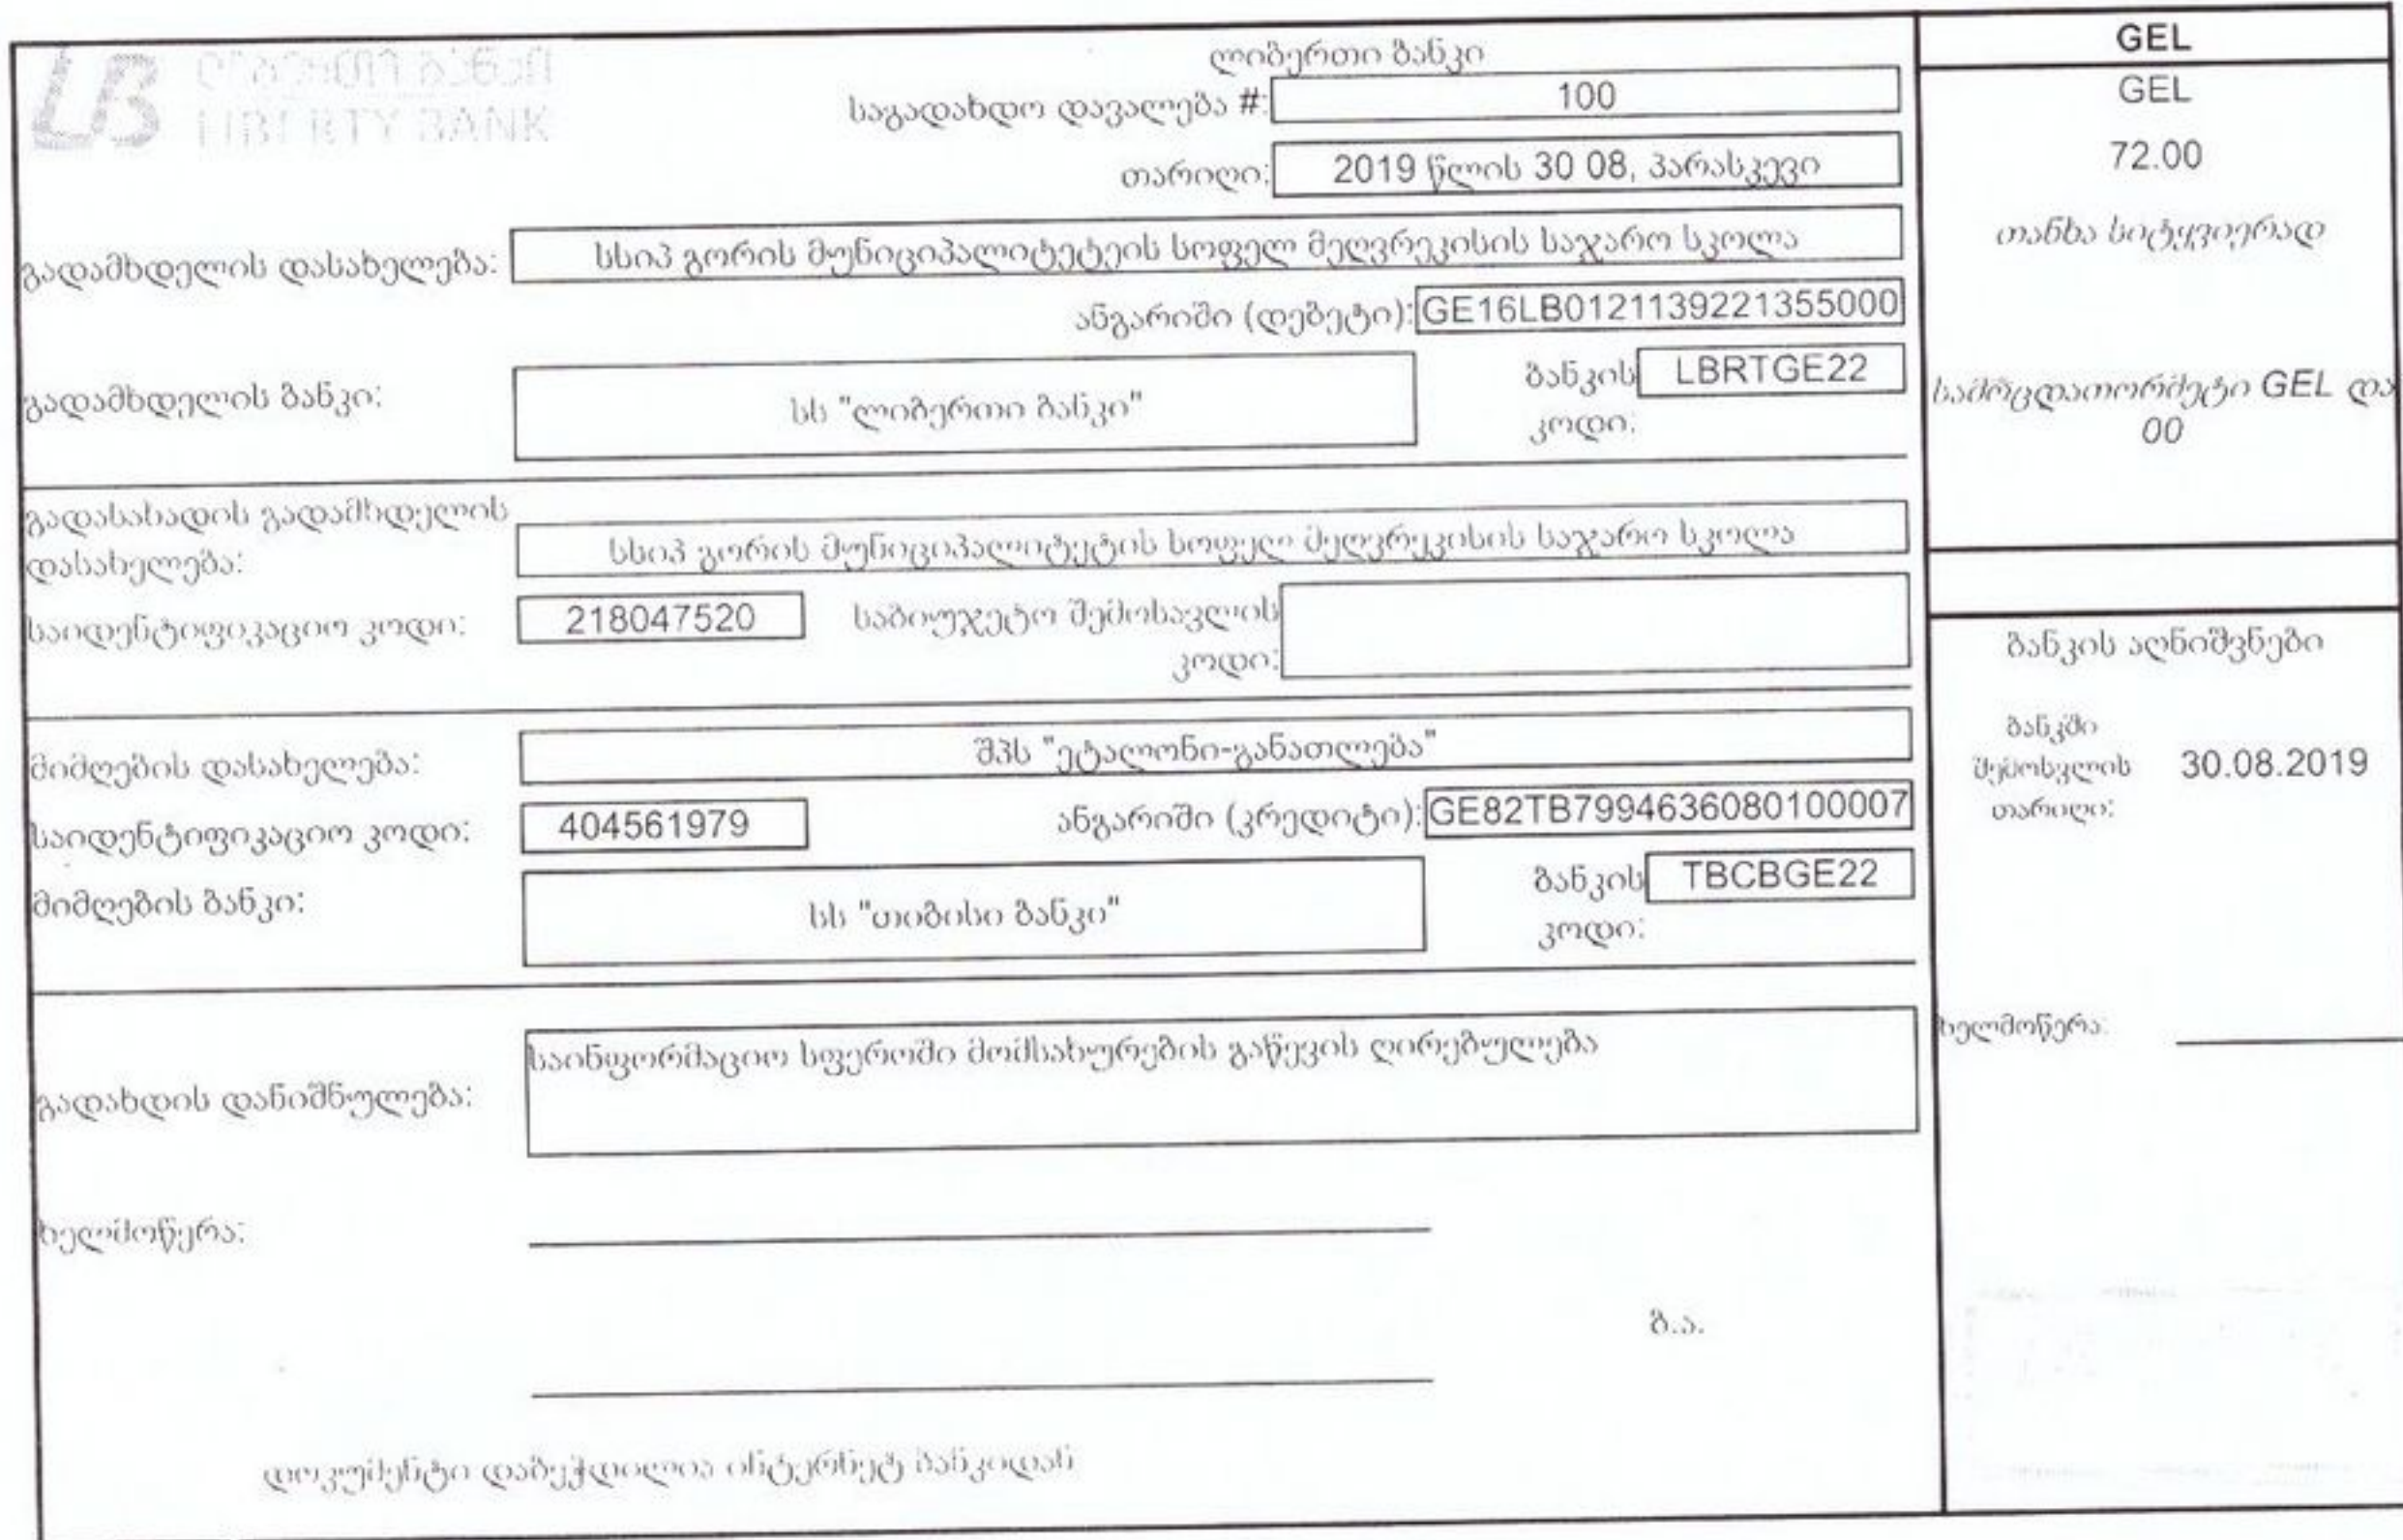 ლიბერთი ბანკი
LIBERTY BANK
ლიბერთი ბანკი
საგადახდო დავალება #: 100
თარიღი: 2019 წლის 30 08, პარასკევი
გადამხდელის დასახელება: სსიპ გორის მუნიციპალიტეტეის სოფელ მეღვრეკისის საჯარო სკოლა
ანგარიში (დებეტი): GE16LB0121139221355000
გადამხდელის ბანკი: სს "ლიბერთი ბანკი" ბანკის LBRTGE22
კოდი:
გადასახადის გადამხდელის
დასახელება: სსიპ გორის მუნიციპალიტეტის სოფელ მეღვრეკისის საჯარო სკოლა
საიდენტიფიკაციო კოდი: 218047520 საბიუჯეტო შემოსავლის
კოდი:
მიმღების დასახელება: შპს "ეტალონი-განათლება"
საიდენტიფიკაციო კოდი: 404561979 ანგარიში (კრედიტი): GE82TB7994636080100007
მიმღების ბანკი: სს "თიბისი ბანკი" ბანკის TBCBGE22
კოდი:
გადახდის დანიშნულება: საინფორმაციო სფეროში მომსახურების გაწევის ღირებულება
ხელმოწერა:
ბ.ა.
დოკუმენტი დაბეჭდილია ინტერნეტ ბანკიდან
GEL
GEL
72.00
თანხა სიტყვიერად
სამოცდათორმეტი GEL და
00
ბანკის აღნიშვნები
ბანკში
შემოსვლის 30.08.2019
თარიღი:
ხელმოწერა: